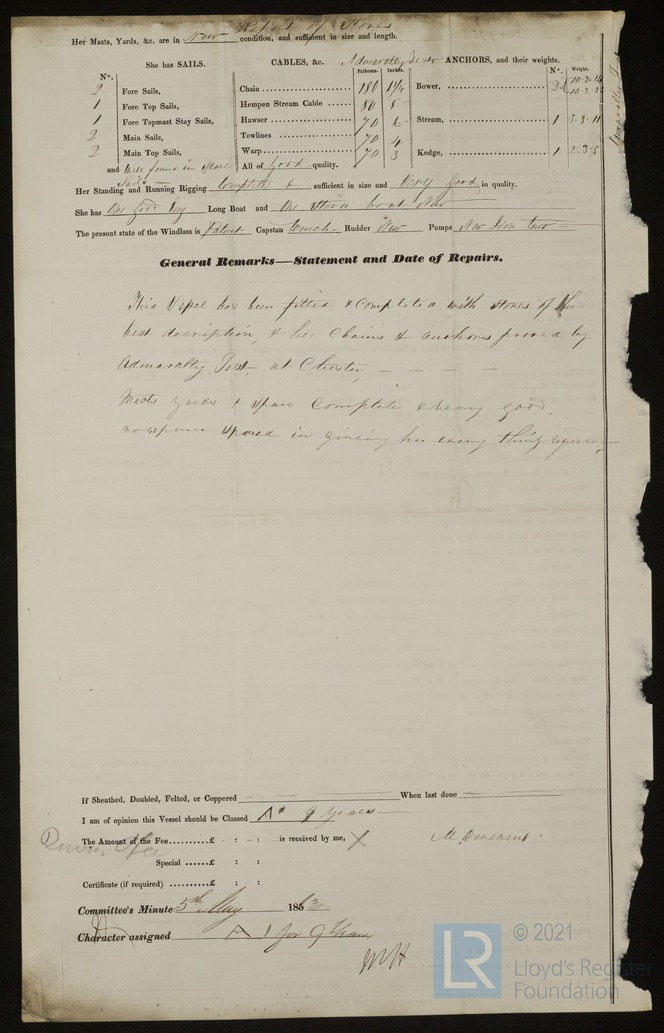 Report of Stores
Her Masts, Yards, &c. are in New condition, and sufficient in size and length.
She has SAILS.
CABLES, &c.
Admaralty Test
ANCHORS, and their weights.
N°.
Fathoms. Inches.
N°. Weight.
2 Fore Sails,
Chain 180 1 1/4
Bower, 2
1 Fore Top Sails,
Hempen Stream Cable 80 8
1 Fore Topmast Stay Sails,
Hawser 70 6
Stream, 1
2 Main Sails,
Towlines 70 4
2 Main Top Sails,
Warp 70 3
Kedge, 1 2-3-5
and well found in
All of Good quality.
Her Standing and Running Rigging Complete & sufficient in size and Very Good in quality.
She has One good Long Boat and One Stern boat New
The present state of the Windlass is Patent Capstan Winch Rudder New Pumps New Iron two
General Remarks—Statement and Date of Repairs.
This Vessel has been fitted & Completed with stores of the
best description, & her Chains & anchors proved by
Admaralty Test at Chester,
Masts Yards & Spars Complete & very good,
no expence spared in giving her every thing required
If Sheathed, Doubled, Felted, or Coppered When last done
I am of opinion this Vessel should be Classed A1 9 Years
The Amount of the Fee £ : : is received by me,
Special £ : :
Certificate (if required) £ : :
Committee's Minute 5th May 1863
Character assigned A 1 for 9 Years
© 2021
LR
Lloyd's Register
Foundation